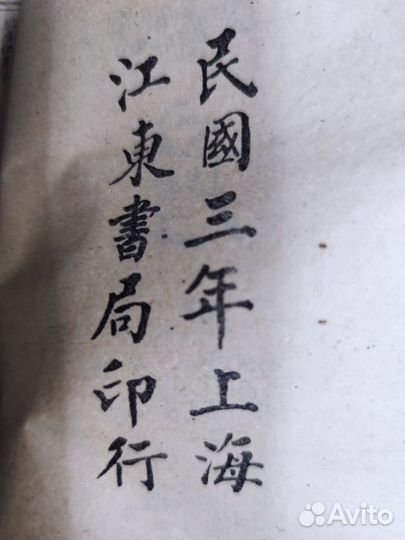 民國三年上海
江東書局印行
Avito